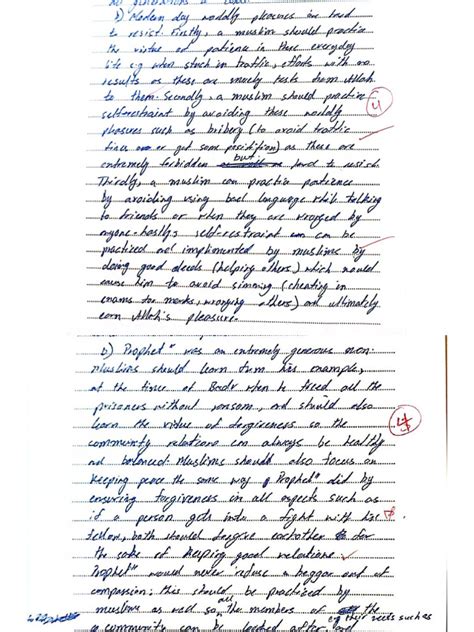 b) Modern day worldly pleasures are hard
to resist. Firstly, a muslim should practice
the virtue of patience in there everyday
life e.g when stuck in traffic, efforts with no
results as these are merely tests from Allah
to them. Secondly, a muslim should practice
4
self-restraint by avoiding these worldly
pleasures such as bribery (to avoid traffic
fines or get some position) as these are
extremely forbidden but hard to resist.
Thirdly, a muslim can practice patience
by avoiding using bad language while talking
to friends or when they are wronged by
anyone. Lastly, self-restraint can be
practiced and implemented by muslims by
doing good deeds (helping others) which would
cause him to avoid sinning (cheating in
exams for marks, wronging others) and ultimately
earn Allah's pleasure.
b) Prophet was an extremely generous man.
Muslims should learn from his example,
at the time of Badr when he freed all the
prisoners without ransom, and should also
learn the virtue of forgiveness so the
4
community relations can always be healthy
and balanced. Muslims should also focus on
keeping peace the same way Prophet did by
ensuring forgiveness in all aspects such as
if a person gets into a fight with his
fellow, both should forgive eachother for
the sake of keeping good relations.
Prophet would never refuse a beggar out of
compassion; this should be practiced by
muslims as well so all the members of the
e.g their needs such as
community can be looked after